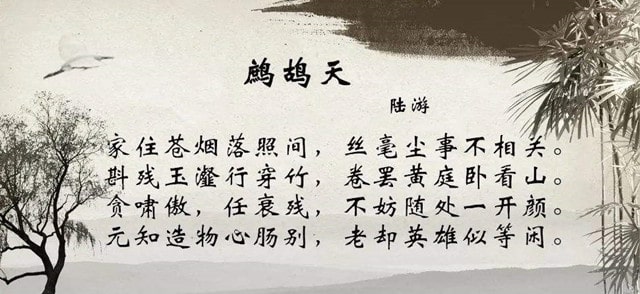 鹧鸪天
陆游
家住苍烟落照间，丝毫尘事不相关。
斟残玉瀣行穿竹，卷罢黄庭卧看山。
贪啸傲，任衰残，不妨随处一开颜。
元知造物心肠别，老却英雄似等闲。